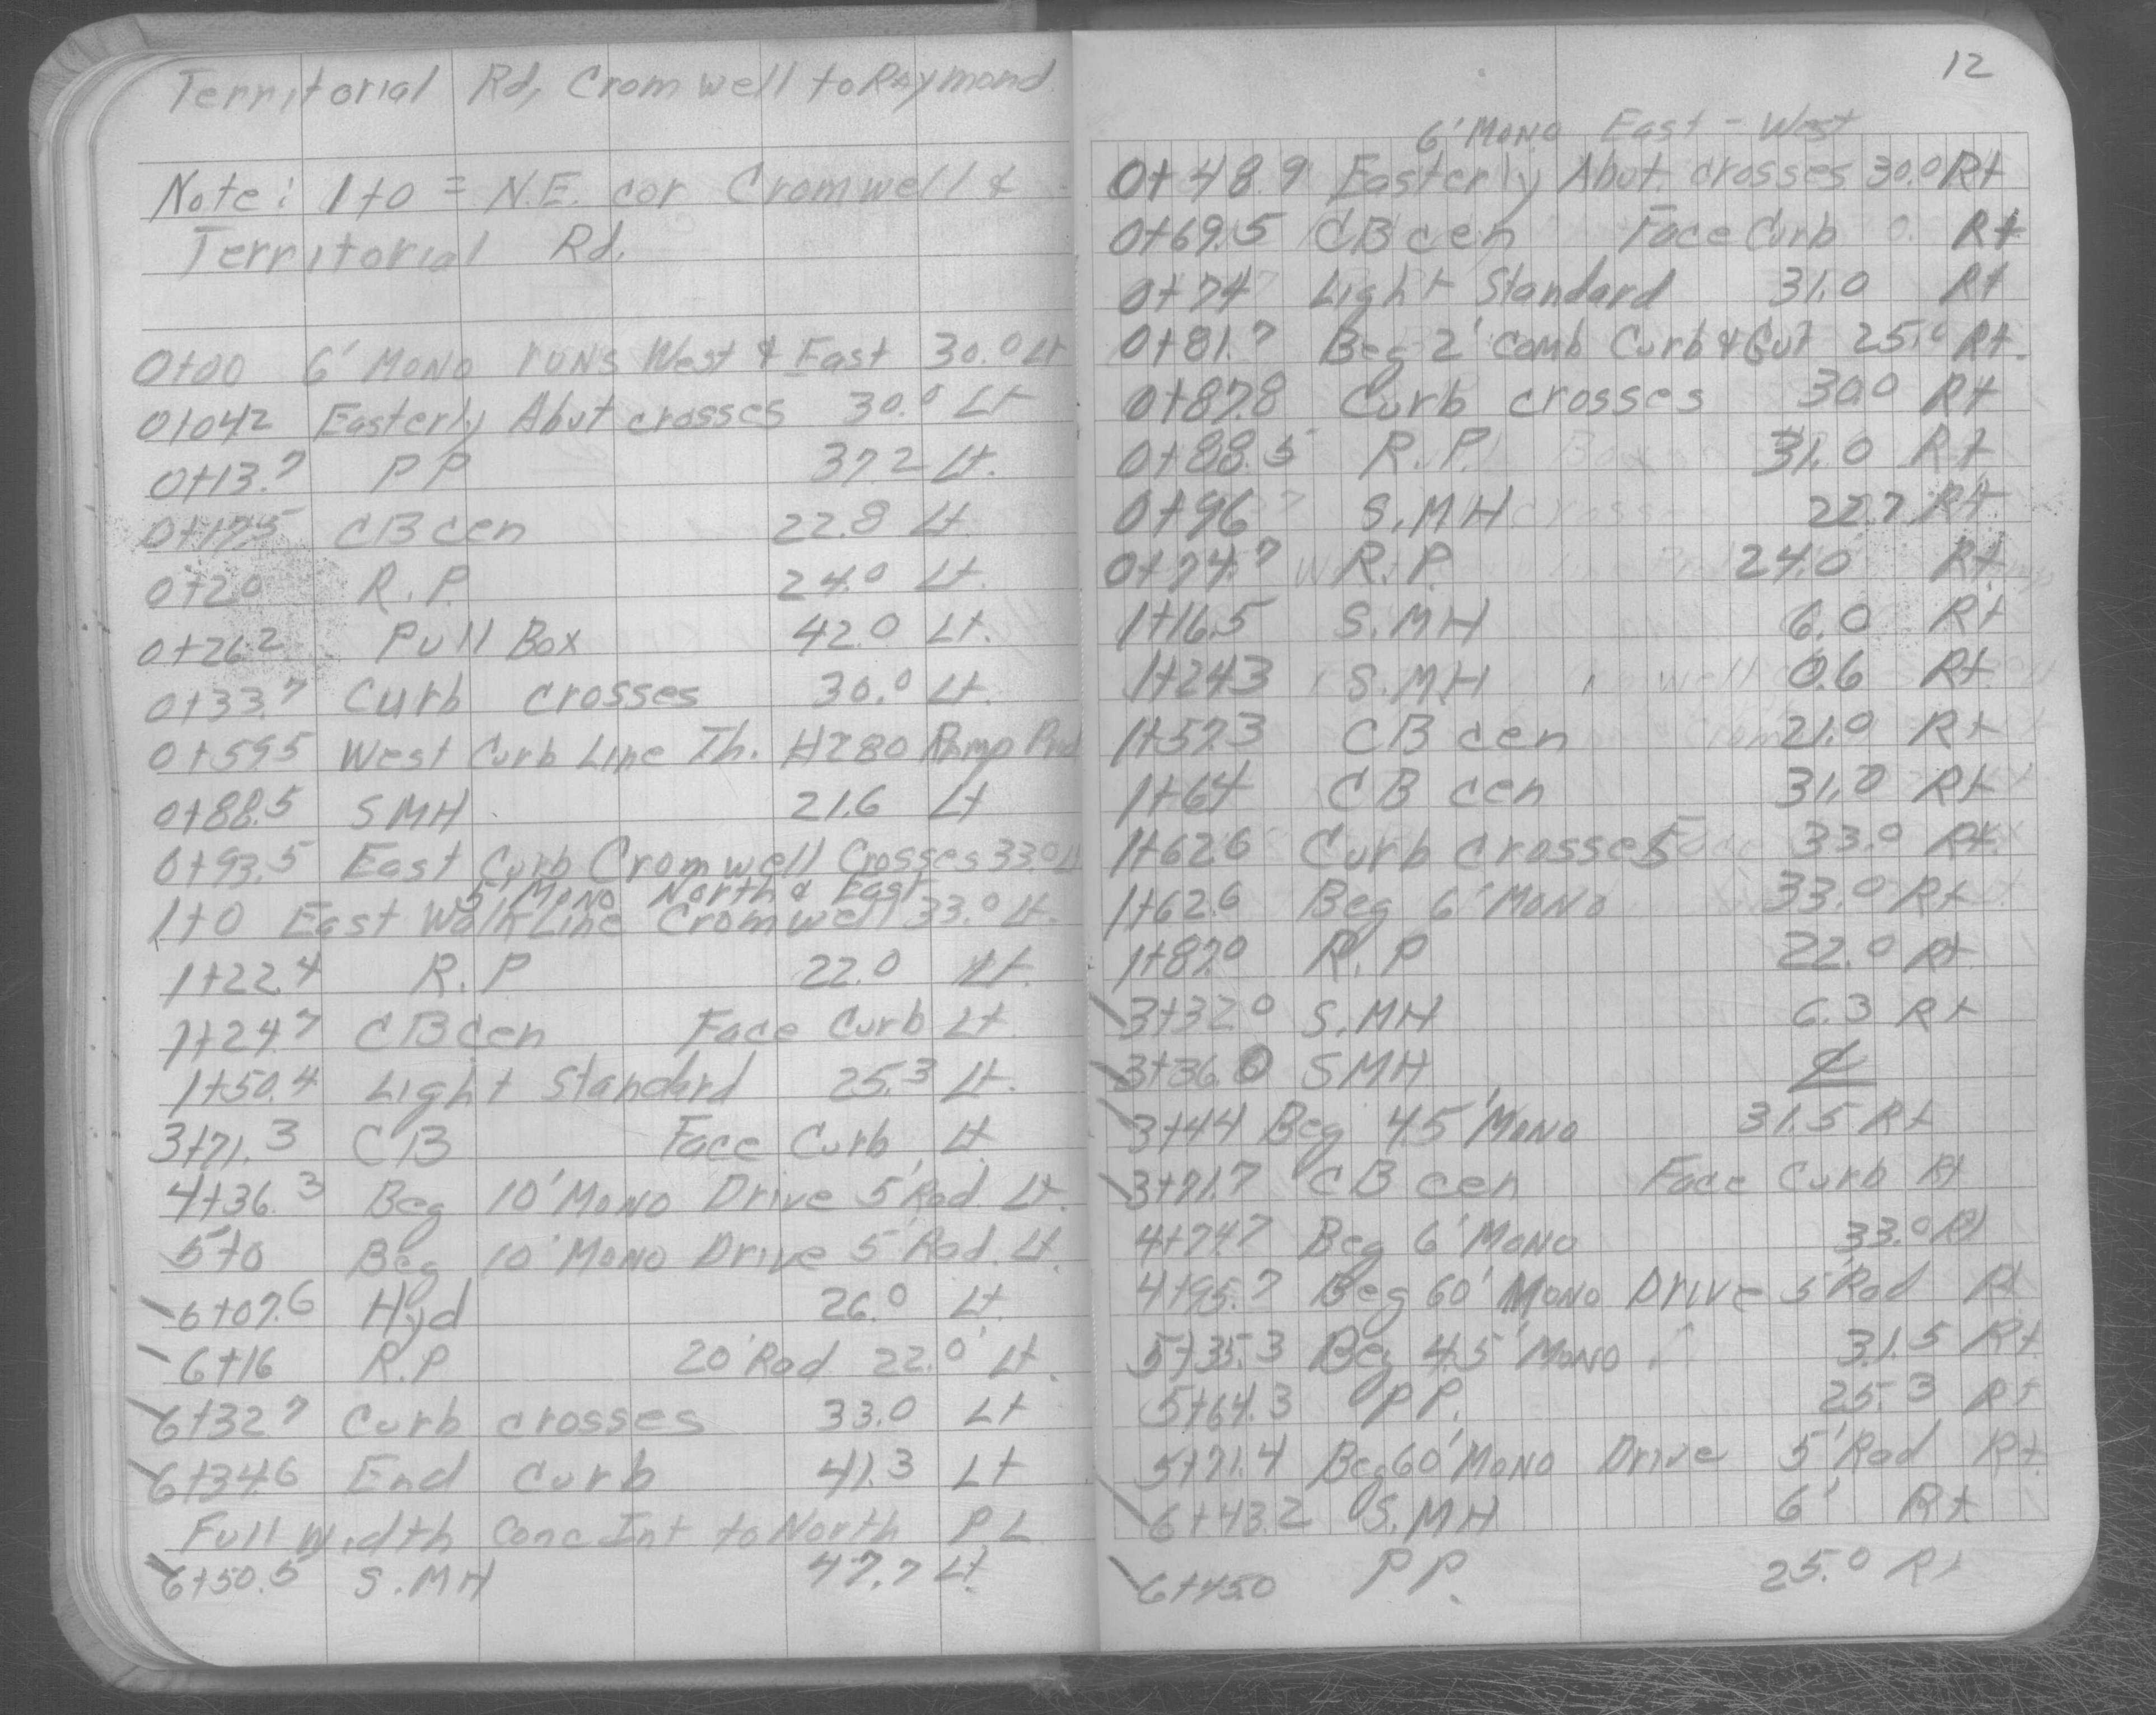 Territorial Rd, Cromwell to Raymond
Note: 1+0 = N.E. cor Cromwell &
Territorial Rd.
0+00 6' MONO runs West & East 30.0 Lt
0+04.2 Easterly Abut crosses 30.0 Lt
0+13.7 PP 37.2 Lt.
0+17.5 CB cen 22.8 Lt
0+20 R.P. 24.0 Lt.
0+26.2 Pull Box 42.0 Lt.
0+33.7 Curb crosses 30.0 Lt.
0+59.5 West Curb Line Th. #280 Ramp Prod
0+88.5 SMH 21.6 Lt
0+93.5 East Curb Cromwell Crosses 33.0 Lt
5' Mono North & East
1+0 East Walk Line Cromwell 33.0 Lt.
1+22.4 R.P 22.0 Lt.
1+24.7 CB cen Face Curb Lt
1+50.4 Light Standard 25.3 Lt.
3+71.3 CB Face Curb Lt
4+36.3 Beg 10' Mono Drive 5' Rad. Lt.
5+0 Beg 10' Mono Drive 5' Rad. Lt.
6+07.6 Hyd 26.0 Lt.
6+16 R.P 20' Rad 22.0' Lt.
6+32.7 Curb crosses 33.0 Lt
6+34.6 End Curb 41.3 Lt
Full Width Conc Int to North PL
6+50.5 S.MH 47.7 Lt.
12
6' Mono East - West
0+48.9 Easterly Abut. crosses 30.0 Rt
0+69.5 CB cen Face Curb Rt
0+74 Light Standard 31.0 Rt
0+81.7 Beg 2' comb Curb & Gut 25.0 Rt.
0+87.8 Curb crosses 30.0 Rt
0+88.5 R.P. 31.0 Rt
0+96 S.MH 22.7 Rt
0+74.7 R.P. 24.0 Rt.
1+16.5 S.MH 6.0 Rt
1+24.3 S.MH 0.6 Rt
1+57.3 CB cen 21.0 Rt
1+64 CB cen 31.0 Rt
1+62.6 Curb crosses 33.0 Rt
1+62.6 Beg 6' Mono 33.0 Rt
1+87.0 R.P 22.0 Rt
3+32.0 S.MH 6.3 Rt
3+36.0 SMH ℄
3+44 Beg 4.5' Mono 31.5 Rt
3+71.7 CB cen Face Curb Rt
4+74.7 Beg 6' Mono 33.0 Rt
4+95.7 Beg 60' Mono Drive 5' Rad Rt
5+35.3 Beg 4.5' Mono 31.5 Rt
5+64.3 PP. 25.3 Rt
5+71.4 Beg 60' Mono Drive 5' Rad Rt.
6+43.2 S.MH 6' Rt
6+45.0 PP. 25.0 Rt